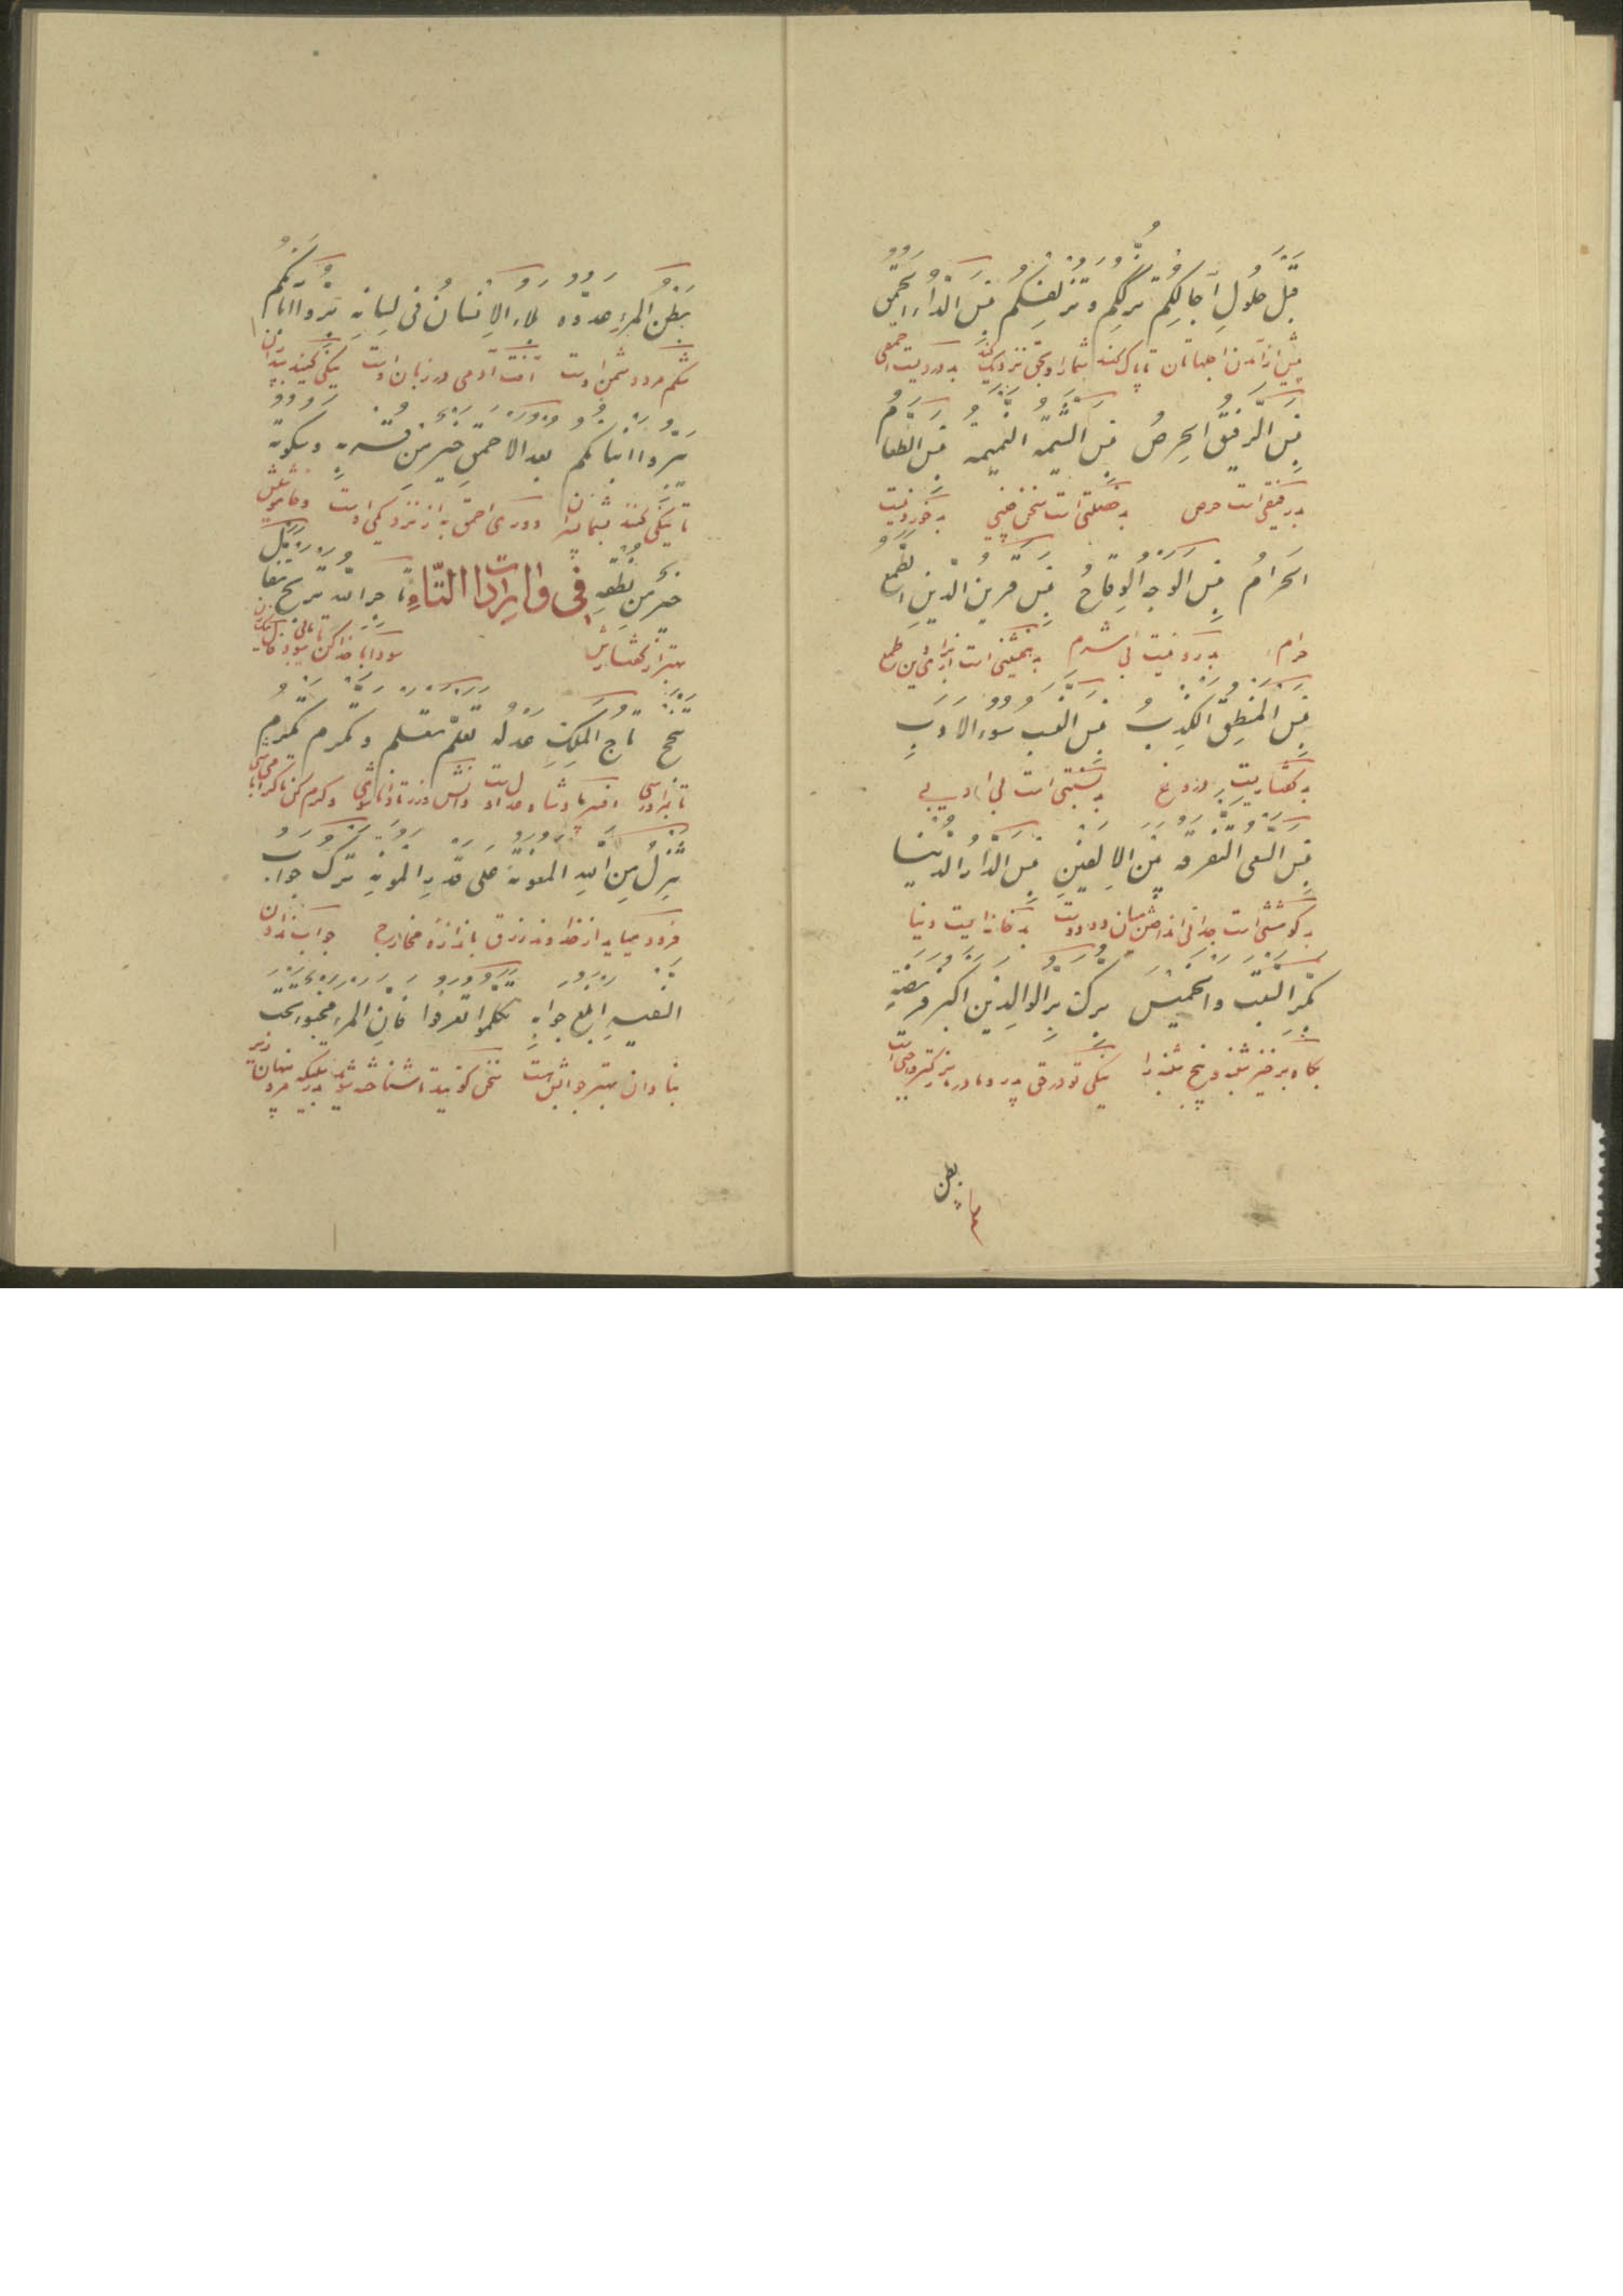 قَبْلَ حُلُولِ آجَالِكُمْ تُزَكِّكُمْ وَتُزْلِفْكُمْ بِئْسَ الدَّاءُ الحُمْقُ
پیش از آمدن اجلهاتان تا پاک کند شما را و بحق نزدیک کند بد دردیست احمقی
بِئْسَ الرَّفِيقُ الحِرْصُ بِئْسَ الشِّيمَةُ النَّمِيمَةُ بِئْسَ الطَّعَامُ
بد رفیقی است حرص بد خصلتی است سخن چینی بد خوردنیست
الحَرَامُ بِئْسَ الوَجْهُ الوِقَاحُ بِئْسَ قَرِينُ الدِّينِ الطَّمَعُ
حرام بد روئیست بی شرم بد همنشینی است از برای دین طمع
بِئْسَ المَنْطِقُ الكَذِبُ بِئْسَ النَّسَبُ سُوءُ الأَدَبِ
بد گفتاریست دروغ بد نسبتی است بی ادبی
بِئْسَ السَّعْيُ التَّفْرِقَةُ بَيْنَ الأَلِفَيْنِ بِئْسَ الدَّارُ الدُّنْيَا
بد کوششی است جدائی انداختن میان دو دوست بد خانه ایست دنیا
بَكِّرِ السَّبْتَ وَالخَمِيسَ بَرَكَةٌ بِرُّ الوَالِدَيْنِ أَكْبَرُ فَرِيضَةٍ
پگاه برخیز شنبه و پنج شنبه را نیکی تو در حق پدر و مادر بزرگتر واجبی است
بطن
بَطْنُ المَرْءِ عَدُوُّهُ بَلَاءُ الإِنْسَانِ فِي لِسَانِهِ بَرُّوا آبَاءَكُمْ
شکم مرد دشمن اوست آفت آدمی در زبان اوست نیکی کنید پدران را
يَبَرُّوا أَبْنَاؤُكُمْ بُعْدُ الأَحْمَقِ خَيْرٌ مِنْ قُرْبِهِ وَسُكُوتُهُ
تا نیکی کنند شما را پسران دوری احمق به از نزدیکی اوست و خاموشیش
خَيْرٌ مِنْ نُطْقِهِ فی وایرادات التّاءِ تَاجِرِ اللهَ تَرْبَحْ تَفَأَّلْ
بهتر از گفتارش سودا با خدا کن تا سود کنی فال نیک زن
تَنْجَحْ تَاجُ المَلِكِ عَدْلُهُ تَعَلَّمْ تَعْلَمْ وَتَكَرَّمْ تُكْرَمْ
تا بمراد رسی افسر پادشاه عدل اوست دانش ورز تا دانا شوی و کرم کن تا گرامی باشی
تَنْزِلُ مِنَ اللهِ المَعُونَةُ عَلَى قَدْرِ المَؤُنَةِ تَرْكُ جَوَابِ
فرود میاید از خداوند رزق باندازه مخارج جواب ندادن
السَّفِيهِ أَبْلَغُ جَوَابِهِ تَكَلَّمُوا تُعْرَفُوا فَإِنَّ المَرْءَ مَخْبُوءٌ تَحْتَ
بنادان بهتر جوابش است سخن گوئید تا شناخته شوید بدرستیکه مرد پنهان است زیر